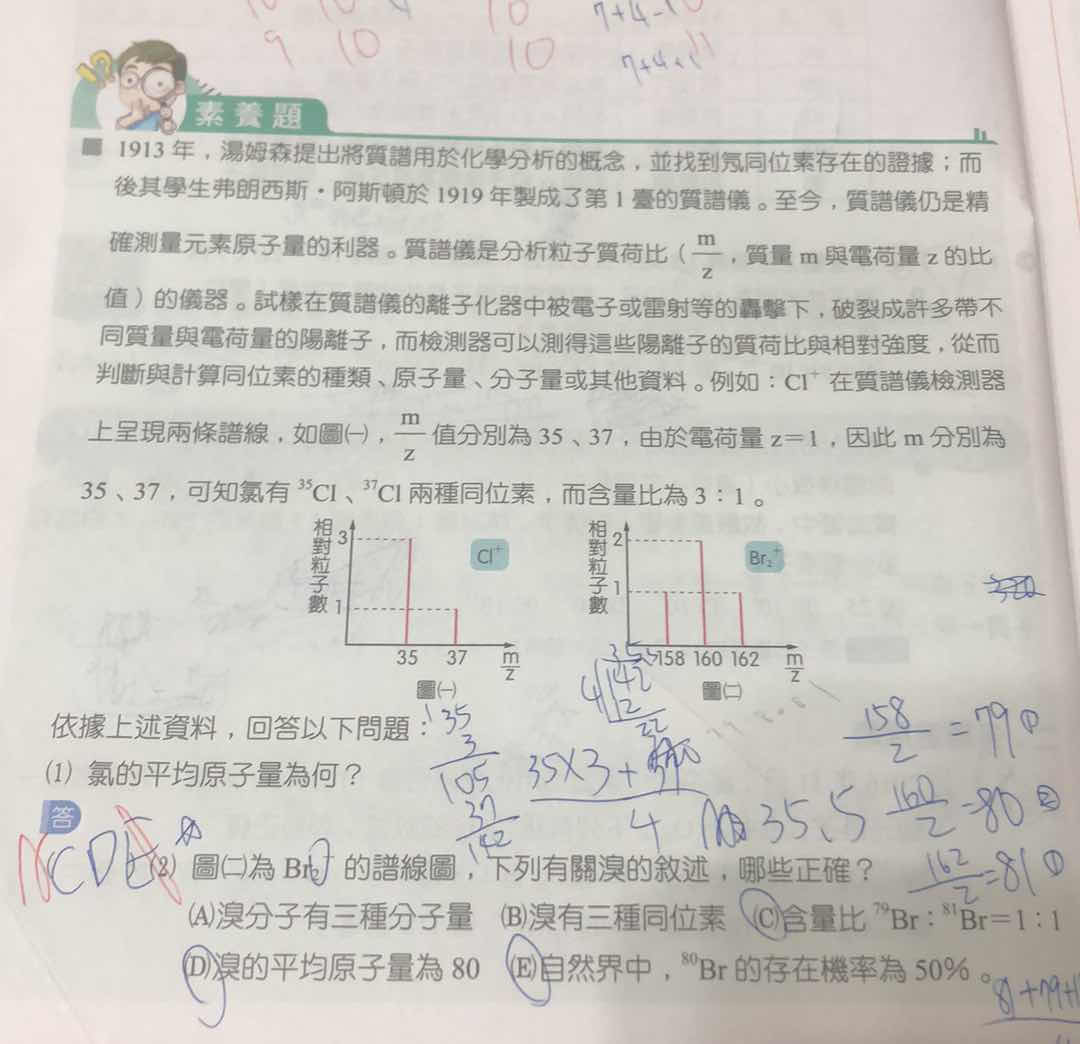 10 10 4 10 7+4-1
9 10 10 7+4+1
素養題
1913 年，湯姆森提出將質譜用於化學分析的概念，並找到氖同位素存在的證據；而
後其學生弗朗西斯・阿斯頓於 1919 年製成了第 1 臺的質譜儀。至今，質譜儀仍是精
確測量元素原子量的利器。質譜儀是分析粒子質荷比（m/z，質量 m 與電荷量 z 的比
值）的儀器。試樣在質譜儀的離子化器中被電子或雷射等的轟擊下，破裂成許多帶不
同質量與電荷量的陽離子，而檢測器可以測得這些陽離子的質荷比與相對強度，從而
判斷與計算同位素的種類、原子量、分子量或其他資料。例如：Cl⁺ 在質譜儀檢測器
上呈現兩條譜線，如圖㈠，m/z 值分別為 35、37，由於電荷量 z＝1，因此 m 分別為
35、37，可知氯有 ³⁵Cl、³⁷Cl 兩種同位素，而含量比為 3：1。
相對粒子數 3 1 Cl⁺ 35 37 m/z
圖㈠
相對粒子數 2 1 Br₂⁺ 158 160 162 m/z
圖㈡
依據上述資料，回答以下問題：
158/2 = 79
⑴ 氯的平均原子量為何？
答
35.5
160/2 = 80
162/2 = 81
CDE
⑵ 圖㈡為 Br₂⁺ 的譜線圖，下列有關溴的敘述，哪些正確？
(A)溴分子有三種分子量 (B)溴有三種同位素 (C)含量比 ⁷⁹Br：⁸¹Br＝1：1
(D)溴的平均原子量為 80 (E)自然界中，⁸⁰Br 的存在機率為 50%。